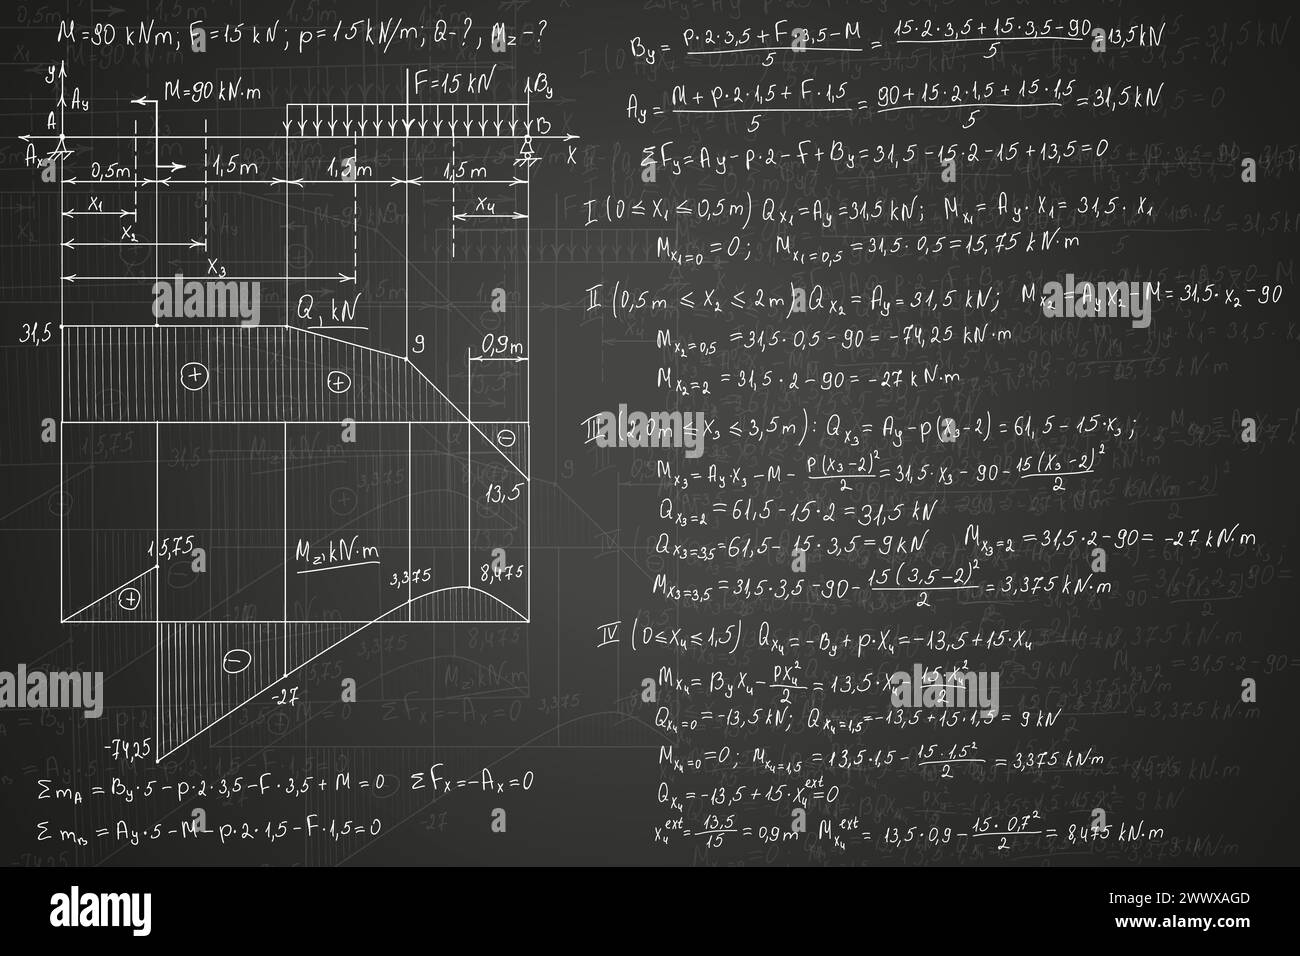 M=90 kNm; F=15 kN; p=15 kN/m; Q-?, Mz-?
y
Ay
M=90 kN·m
F=15 kN
By
A
B
Ax
X
0,5m
1,5m
1,5m
1,5m
x1
x4
x2
x3
Q, kN
31,5
9
0,9m
+
+
-
13,5
15,75
Mz, kN·m
3,375
8,475
+
-
-27
-74,25
ΣmA = By·5-p·2·3,5-F·3,5+M=0 ΣFx=-Ax=0
ΣmB = Ay·5-M-p·2·1,5-F·1,5=0
By = (p·2·3,5+F·3,5-M)/5 = (15·2·3,5+15·3,5-90)/5 = 13,5kN
Ay = (M+p·2·1,5+F·1,5)/5 = (90+15·2·1,5+15·1,5)/5 = 31,5kN
ΣFy=Ay-p·2-F+By=31,5-15·2-15+13,5=0
I (0≤x1≤0,5m) Qx1=Ay=31,5kN; Mx1=Ay·x1=31,5·x1
Mx1=0=0; Mx1=0,5=31,5·0,5=15,75 kN·m
II (0,5m≤x2≤2m) Qx2=Ay=31,5 kN; Mx2=Ayx2-M=31,5·x2-90
Mx2=0,5=31,5·0,5-90=-74,25 kN·m
Mx2=2=31,5·2-90=-27kN·m
III (2,0m≤x3≤3,5m): Qx3=Ay-p(x3-2)=61,5-15·x3;
Mx3=Ay·x3-M-p(x3-2)²/2=31,5·x3-90-15(x3-2)²/2
Qx3=2=61,5-15·2=31,5 kN
Qx3=3,5=61,5-15·3,5=9kN Mx3=2=31,5·2-90=-27 kN·m
Mx3=3,5=31,5·3,5-90-15(3,5-2)²/2=3,375kN·m
IV (0≤x4≤1,5) Qx4=-By+p·x4=-13,5+15·x4
Mx4=Byx4-px4²/2=13,5·x4-15·x4²/2
Qx4=0=-13,5kN; Qx4=1,5=-13,5+15·1,5=9kN
Mx4=0=0; Mx4=1,5=13,5·1,5-15·1,5²/2=3,375 kNm
Qx4=-13,5+15·x4ext=0
x4ext=13,5/15=0,9m Mx4ext=13,5·0,9-15·0,7²/2=8,475 kN·m
alamy
Image ID: 2WWXAGD
www.alamy.com